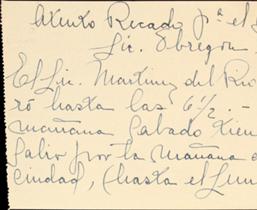 Atento Recado pª el S
Lic. Obregon
El Lic. Martinez del Rio
ró hasta las 6½. -
mañana Sabado tien
salir por la mañana a
ciudad, (hasta el Lun